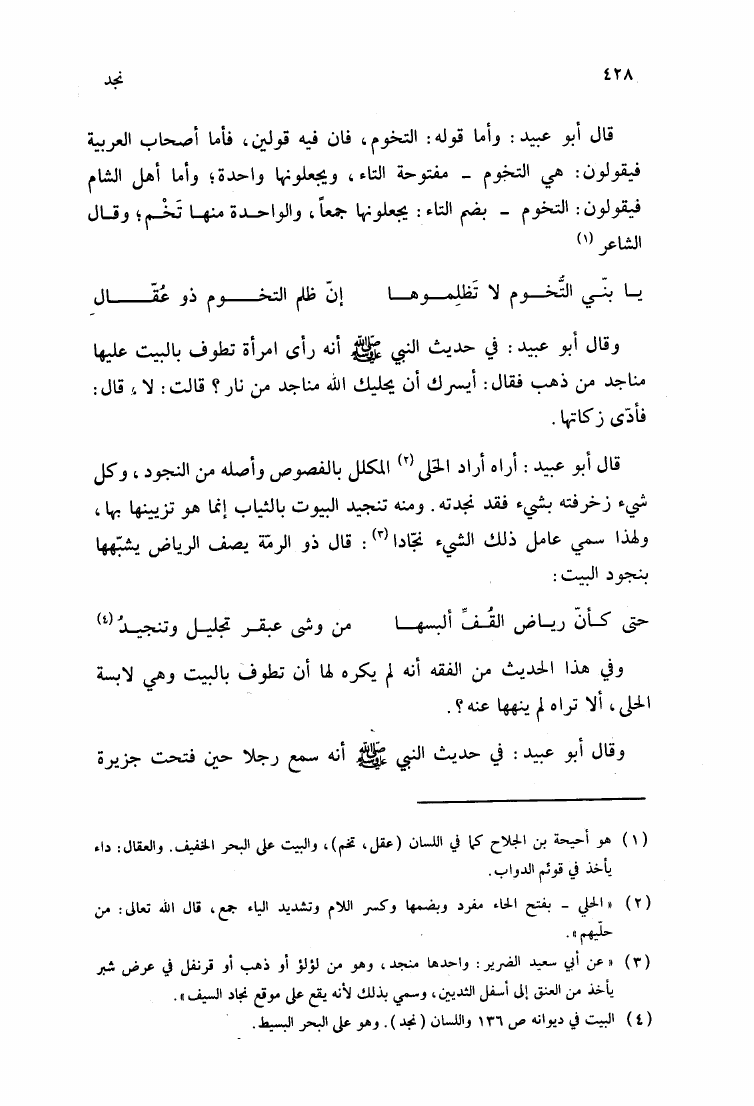 ٤٢٨ نجد
قال أبو عبيد: وأما قوله: التخوم، فان فيه قولين، فأما أصحاب العربية
فيقولون: هي التخوم - مفتوحة التاء، ويجعلونها واحدة؛ وأما أهل الشام
فيقولون: التخوم - بضم التاء: يجعلونها جمعاً، والواحدة منها تَخْم؛ وقال
الشاعر (١)
يا بنّي التُّخوم لا تَظلِموها إنّ ظلم التخوم ذو عُقّال
وقال أبو عبيد: في حديث النبي ﷺ أنه رأى امرأة تطوف بالبيت عليها
مناجد من ذهب فقال: أيسرك أن يحليك الله مناجد من نار؟ قالت: لا، قال:
فأدّى زكاتها.
قال أبو عبيد: أراه أراد الحَلى (٢) المكلل بالفصوص وأصله من النجود، وكل
شيء زخرفته بشيء فقد نجدته. ومنه تنجيد البيوت بالثياب إنما هو تزيينها بها،
ولهذا سمي عامل ذلك الشيء نجّادا (٣): قال ذو الرمّة يصف الرياض يشبّهها
بنجود البيت:
حتى كأنّ رياض القُفِّ ألبسها من وشى عبقر تجليل وتنجيدُ (٤)
وفي هذا الحديث من الفقه أنه لم يكره لها أن تطوف بالبيت وهي لابسة
الحلى، ألا تراه لم ينهها عنه؟.
وقال أبو عبيد: في حديث النبي ﷺ أنه سمع رجلا حين فتحت جزيرة
(١) هو أحيحة بن الجلاح كما في اللسان (عقل، تخم)، والبيت على البحر الخفيف. والعقال: داء
يأخذ في قوئم الدواب.
(٢) «الحلي - بفتح الحاء مفرد وبضمها وكسر اللام وتشديد الياء جمع، قال الله تعالى: من
حلّيهم».
(٣) «عن أبي سعيد الضرير: واحدها منجد، وهو من لؤلؤ أو ذهب أو قرنفل في عرض شبر
يأخذ من العنق إلى أسفل الثديين، وسمي بذلك لأنه يقع على موقع نجاد السيف».
(٤) البيت في ديوانه ص ١٣٦ واللسان (نجد). وهو على البحر البسيط.